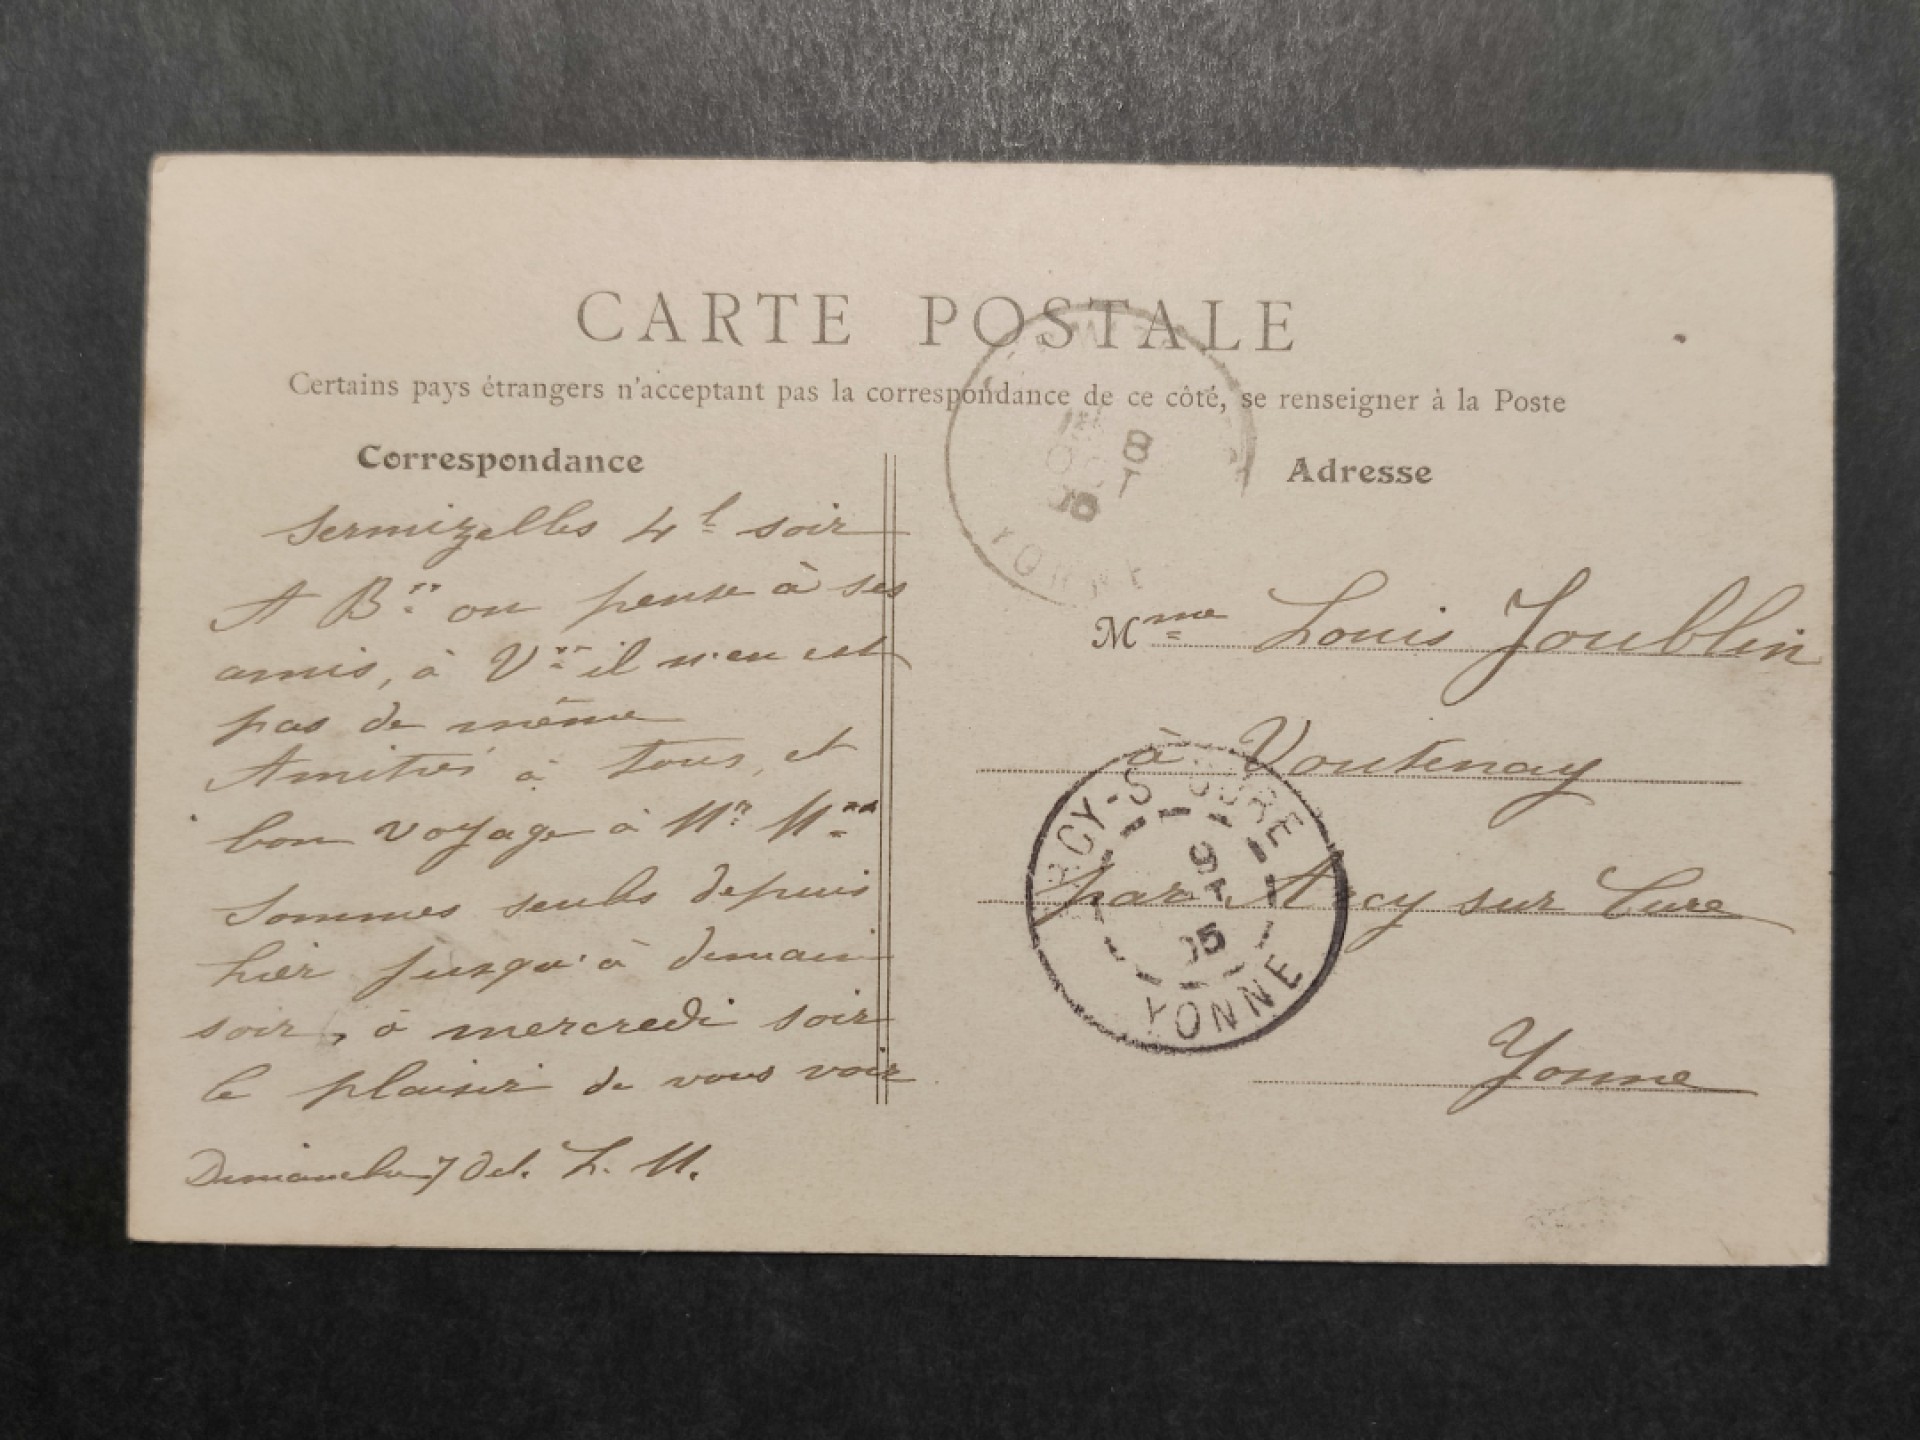 CARTE POSTALE
Certains pays étrangers n'acceptant pas la correspondance de ce côté, se renseigner à la Poste
Correspondance
Sermizelles 4h soir
A B.. on pense à ses
amis, à V.. il n'en est
pas de même
Amitiés à tous, et
bon voyage à Mr Mme
Sommes seuls depuis
hier jusqu'à demain
soir, à mercredi soir
le plaisir de vous voir
Dimanche 7 L. M.
8
YONNE
Adresse
Mme Louis Joublin
à Voutenay
par Arcy sur Cure
Yonne
ARCY-S-CURE
9
05
YONNE